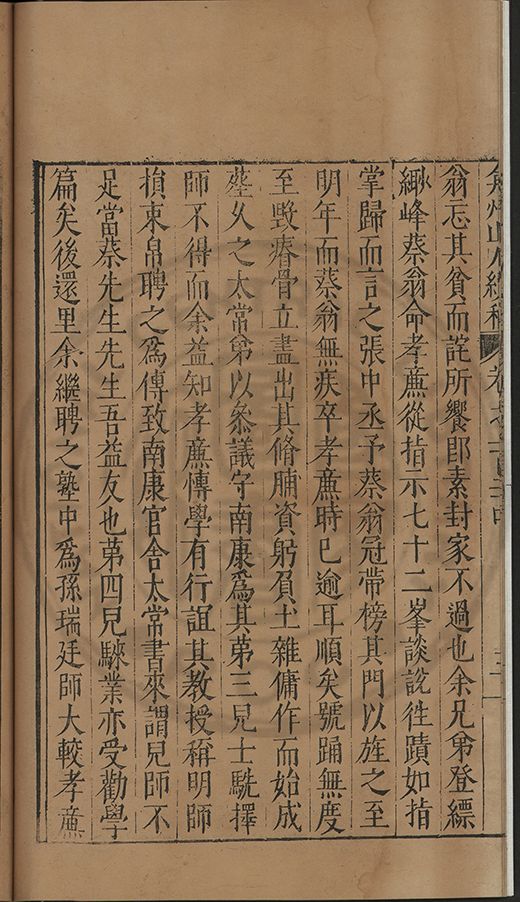 弇州山人續稿 卷之一百三十四
翁忘其貧而詫所饗郎素封家不過也余兄弟登縹
緲峰蔡翁命孝廉從指示七十二峯談說徃蹟如指
掌歸而言之張中丞予蔡翁冠帶榜其門以旌之至
明年而蔡翁無疾卒孝廉時已逾耳順矣號踊無度
至毀瘠骨立盡出其脩脯資躬負土雜傭作而始成
塟久之太常弟以叅議守南康為其第三兒士駪擇
師不得而余益知孝廉慱學有行誼其教授稱明師
損束帛聘之為傅致南康官舍太常書來謂兒師不
足當蔡先生先生吾益友也第四兒騋業亦受勸學
篇矣後還里余繼聘之塾中為孫瑞廷師大較孝廉